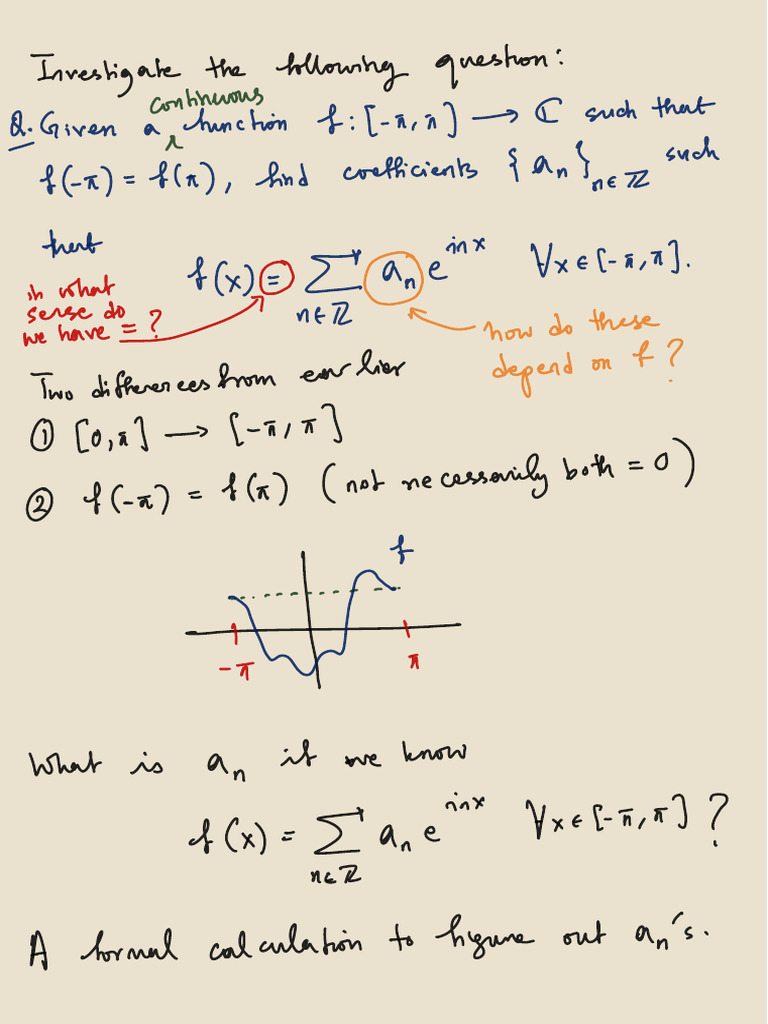 Investigate the following question:
Q. Given a continuous function f: [-π, π] → ℂ such that
f(-π) = f(π), find coefficients {a_n}_{n∈ℤ} such
that
f(x) = ∑_{n∈ℤ} a_n e^{inx} ∀x∈[-π, π].
in what
sense do
we have = ?
how do these
depend on f?
Two differences from earlier
① [0, π] → [-π, π]
② f(-π) = f(π) (not necessarily both = 0)
f
-π π
What is a_n if we know
f(x) = ∑_{n∈ℤ} a_n e^{inx} ∀x∈[-π, π] ?
A formal calculation to figure out a_n's.